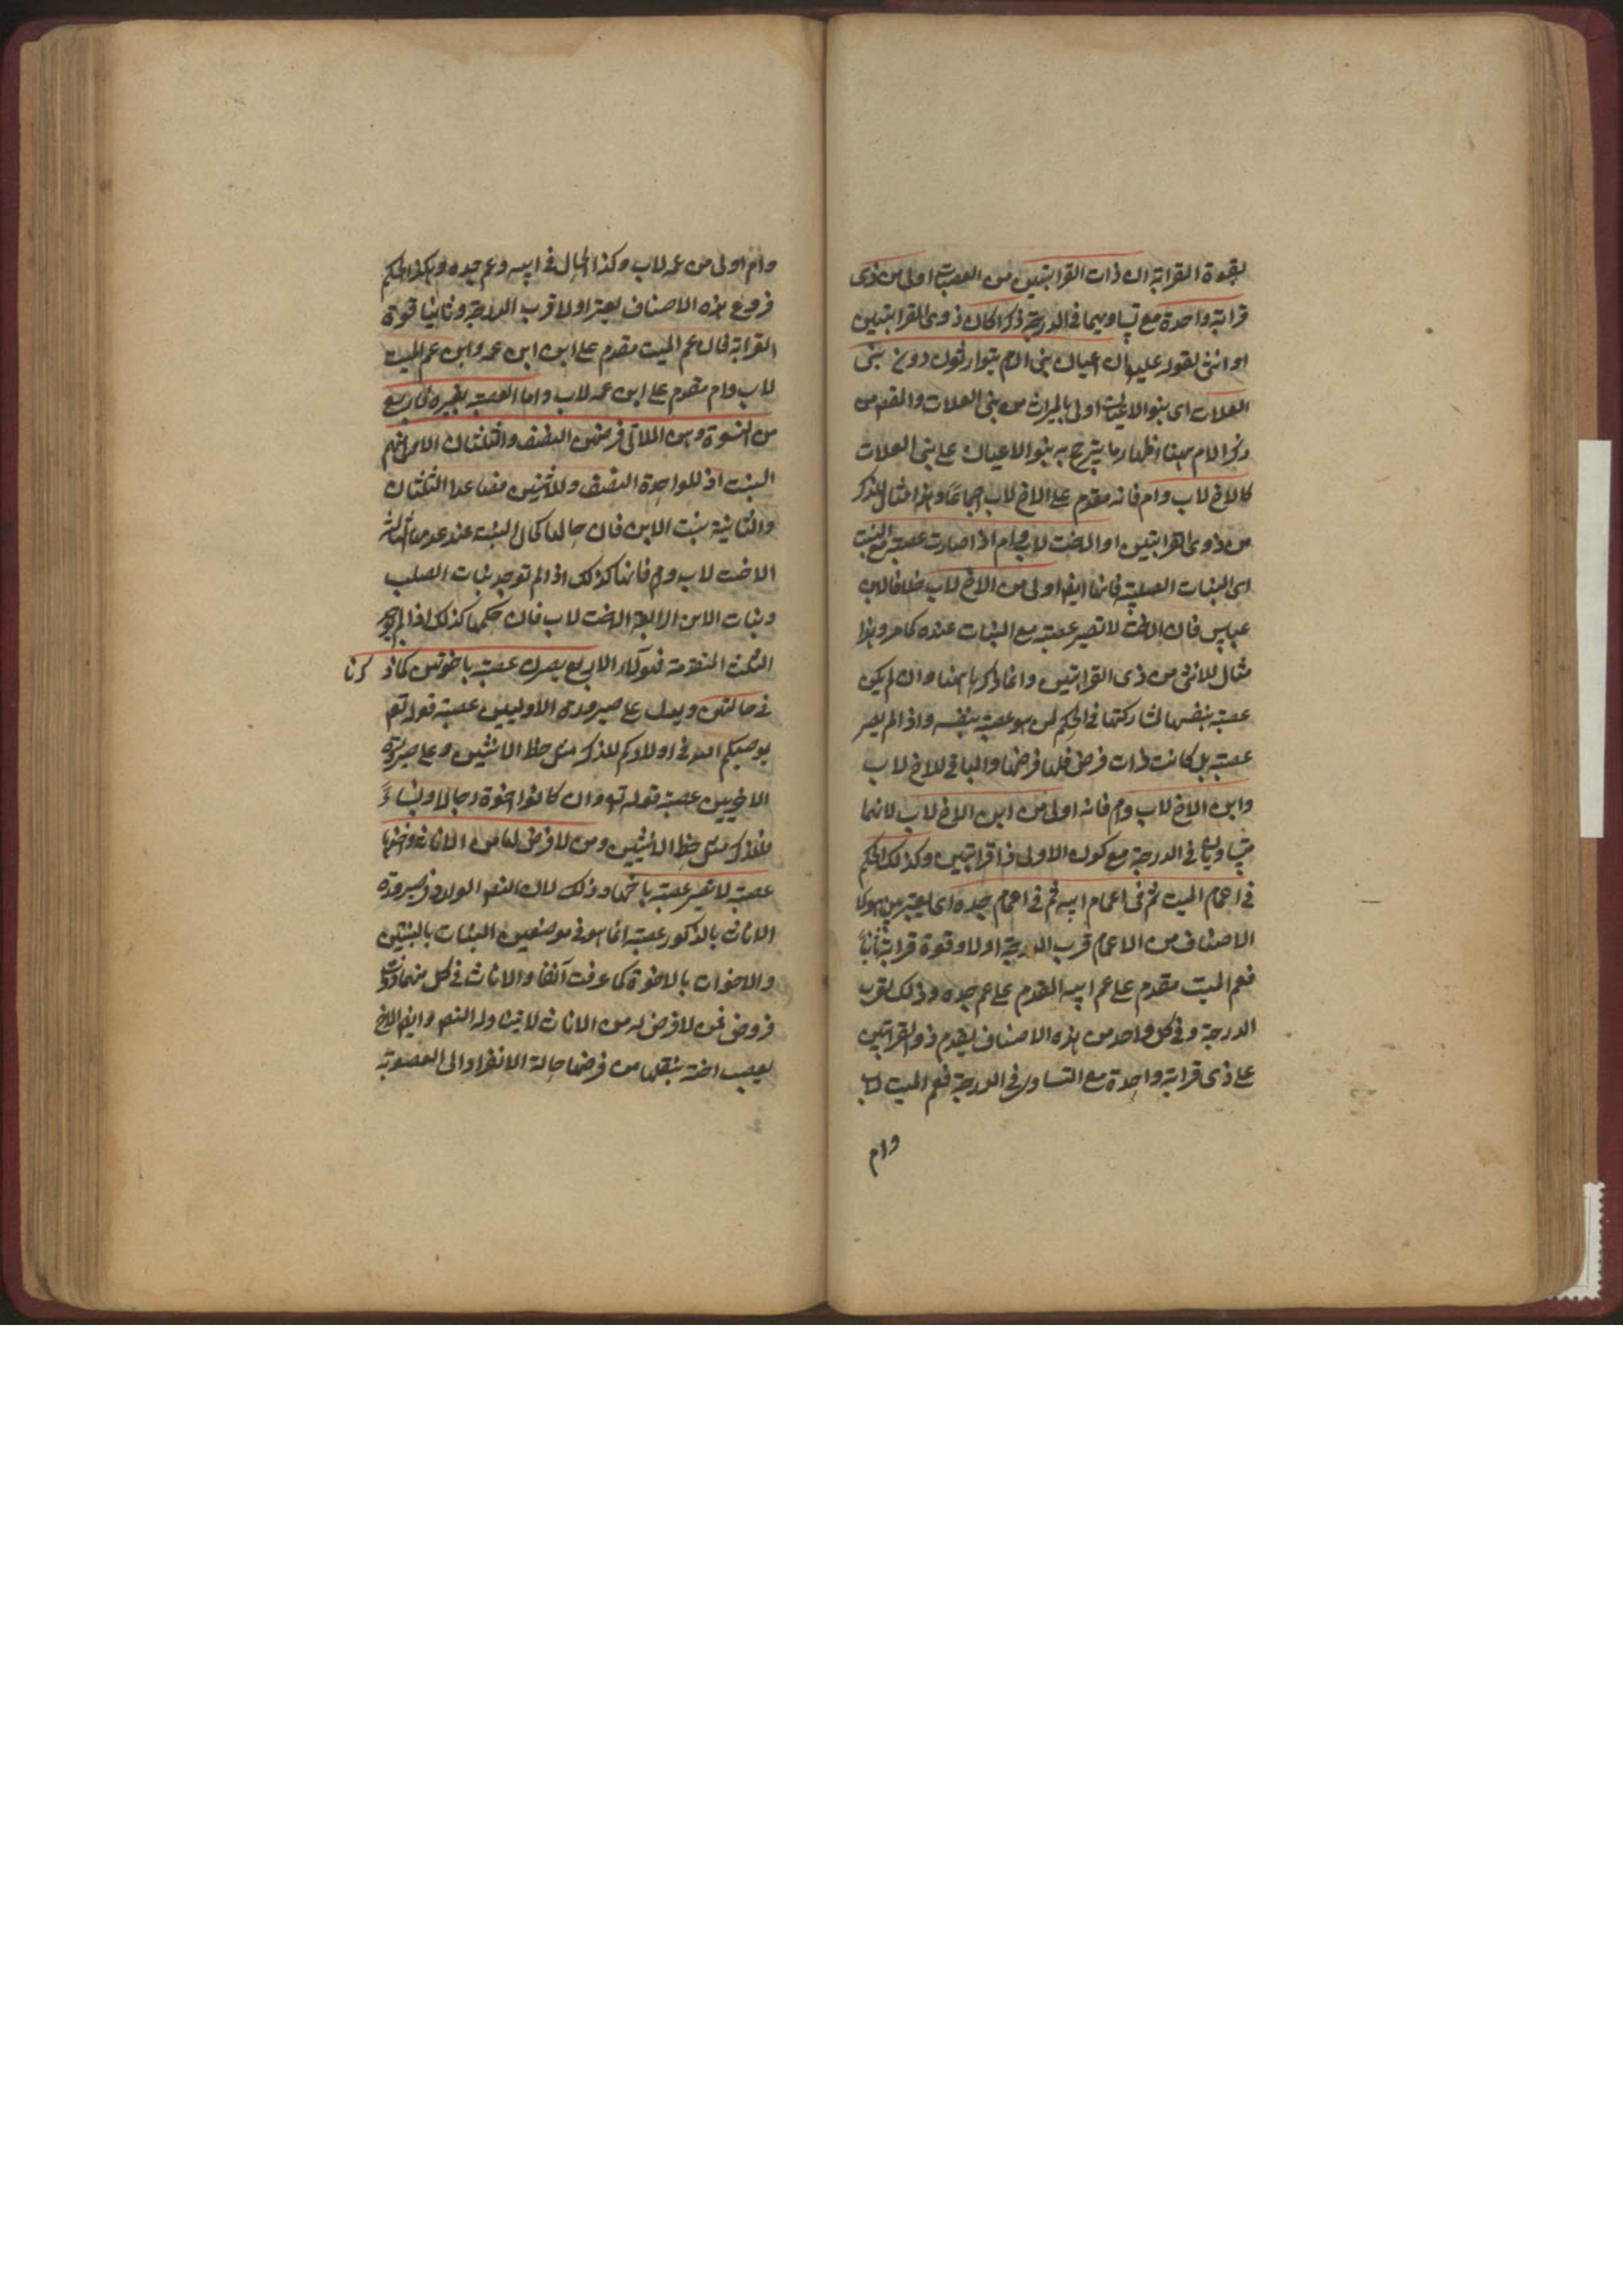 بقوة القرابة ان ذات القرابتين من العصبات اولى من ذى
قرابة واحدة مع تساويهما فى الدرجة ذكرا كان ذوى القرابتين
او انثى لقوله عليه ان اعيان بنى الام يتوارثون دون بنى
العلات اى بنو الاعيان اولى بالميراث من بنى العلات والمقص من
ذكر الام ههنا اظهار ما يترجح به بنو الاعيان على بنى العلات
كالاخ لاب وام فانه مقدم على الاخ لاب اجماعا وهذا مثال للذكر
من ذوى القرابتين او الاخت لاب وام اذا صارت عصبة مع البنت
اى البنات الصلبية فانها ايضا اولى من الاخ لاب خلافا لابن
عباس فان الاخت لا تصير عصبة مع البنات عنده كما مر وهذا
مثال للانثى من ذى القرابتين وانما ذكرها ههنا وان لم يكن
عصبة بنفسها لمشاركتها فى الحكم لمن هو عصبة بنفسه واذا لم يصر
عصبة بل كانت ذات فرض فلها فرضها والباقى للاخ لاب
وابن الاخ لاب وام فانه اولى من ابن الاخ لاب لانهما
متساويان فى الدرجة مع كون الاولى ذا قرابتين وكذلك الحكم
فى اعمام الميت ثم فى اعمام ابيه ثم فى اعمام جده اى يعتبر بين هولاء
الاصناف من الاعمام قرب الدرجة اولا وقوة قرابة ثانيا
فعم الميت مقدم على عم ابيه المقدم على عم جده وذلك لقرب
الدرجة وفى كل واحد من هذه الاصناف يقدم ذو القرابتين
على ذى قرابة واحدة مع التساوى فى الدرجة فعم الميت لاب
وام
وام اولى من عمه لاب وكذا الحال فى ابيه وعم جده وهكذا الحكم
فروع هذه الاصناف يعتبر اولا قرب الدرجة وثانيا قوة
القرابة فان عم الميت مقدم على ابن ابن عمه وابن عم الميت
لاب وام مقدم على ابن عمه لاب واما العصبة بغيره فاربع
من النسوة وهن اللاتى فرضهن النصف والثلثان الاولى منهم
البنت اذ للواحدة النصف وللاثنين فصاعدا الثلثان
والثانية بنت الابن فان حالها كحال البنت عند عدمها الثالثة
الاخت لاب وام فانها كذلك اذا لم توجد بنات الصلب
وبنات الابن الرابعة الاخت لاب فان حكمها كذلك اذا لم توجد
الثلث المتقدمة فهولاء الاربع يصرن عصبة باخوتهن كما ذكرنا
فى حالتهن ويدل على صيرورة الاوليين عصبة قوله تع
يوصيكم الله فى اولادكم للذكر مثل حظ الانثيين وعلى صيرورة
الاخريين عصبة قوله تع وان كانوا اخوة رجالا ونساء
فللذكر مثل حظ الانثيين ومن لا فرض لها من الاناث واخوها
عصبة لا تصير عصبة باخيها وذلك لان النص الوارد فى صيرورة
الاناث بالذكور عصبة انما هو فى موضعين البنات بالبنين
والاخوات بالاخوة كما عرفت آنفا والاناث فى كل منهما ذوات
فروض فمن لا فرض له من الاناث لا يتناوله النص وايضا الاخ
يعصب اخته بنقلها من فرضها حالة الانفراد الى العصوبة